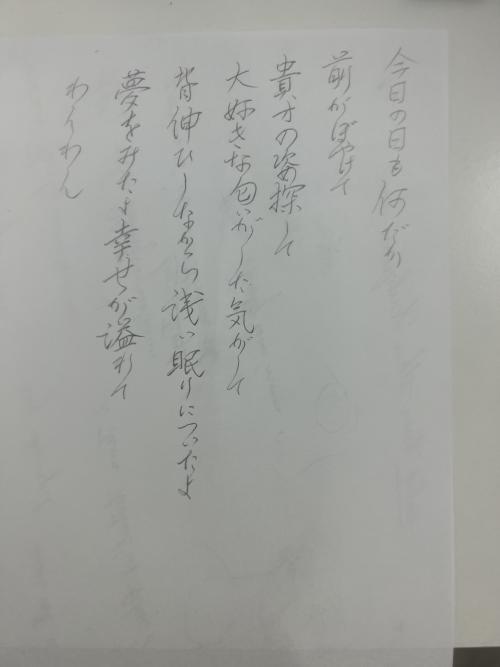 今日の日も何だか
前がぼやけて
貴方の姿探して
大好きな匂いがした気がして
背伸びしながら浅い眠りについたよ
夢をみたよ幸せが溢れて
わんわん